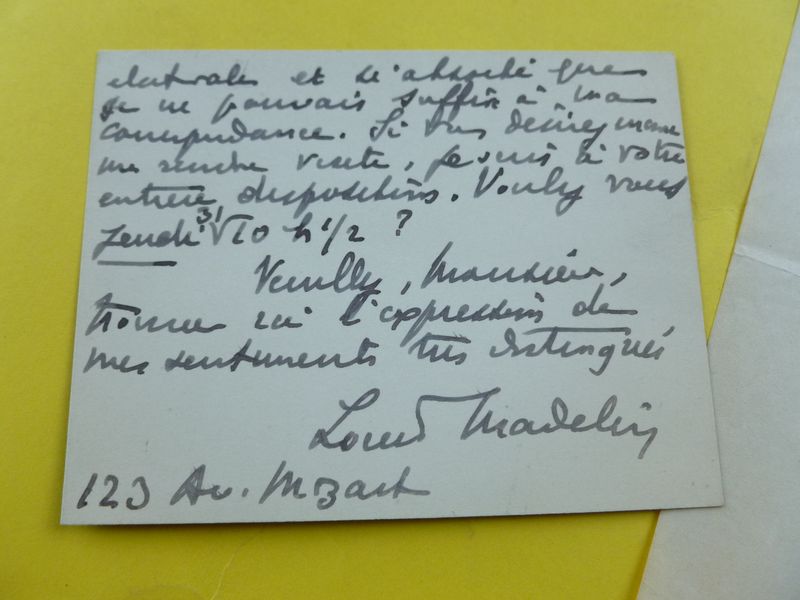 électorales et si absorbé que
je ne pouvais suffire à ma
correspondance. Si vous désirez me
rendre visite, je suis à votre
entière disposition. Voulez vous
jeudi 31 10 h 1/2 ?
Veuillez, Monsieur,
trouver ici l'expression de
mes sentiments très distingués
Louis Madelin
123 Av. Mozart